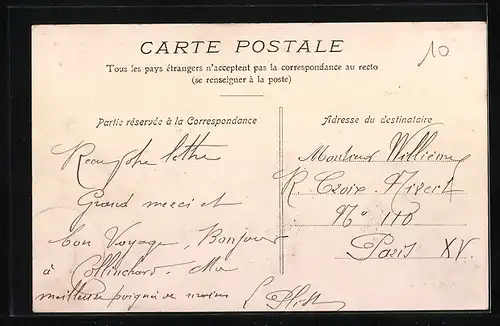 CARTE POSTALE
10
Tous les pays étrangers n'acceptent pas la correspondance au recto
(se renseigner à la poste)
Partie réservée à la Correspondance
Adresse du destinataire
Reçu votre lettre
Grand merci et
bon Voyage, Bonjour
à Collinchard. Ma
meilleure poignée de mains
Monsieur Williéme
R. Croix-Nivert
No 110
Paris XV.